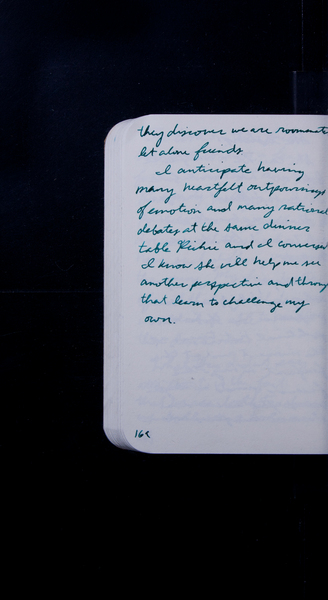 they discover we are roommates
let alone friends
I anticipate having
many heartfelt outpourings
of emotion and many rational
debates at the same dinner
table Richie and I conversed
I know she will help me see
another perspective and through
that learn to challenge my
own.
169